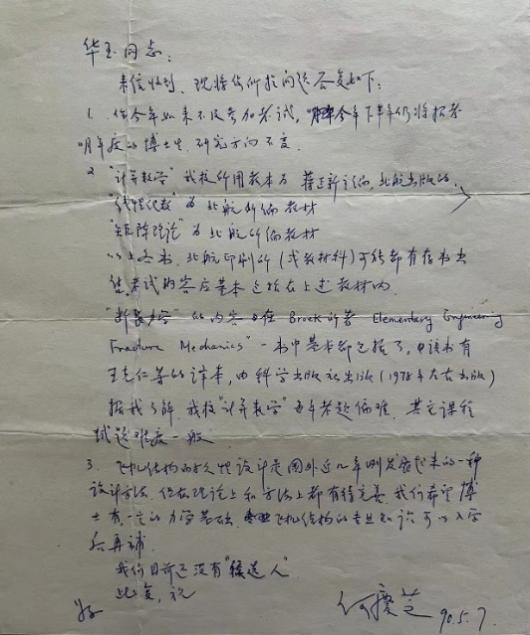 华玉同志：
来信收到，现将你所提问题答复如下：
1. 你今年如来不及参加考试，今年下半年仍将招考
明年度的博士生，研究方向不变。
2 "计算数学" 我校所用教本为 蒋正新主编，北航出版的，
"线性代数" 为北航所编教材
"矩阵理论" 为北航所编教材
以上各书，北航印刷所（或教材科）可能都有存书出
售，考试内容应基本包括在上述教材内。
"断裂力学" 的内容在 Broek 所著 Elementary Engineering
Fracture Mechanics" 一书中基本都包括了，该书有
王克仁等的译本，由科学出版社出版（1978年左右出版）
据我了解，我校"计算数学"历年考题偏难，其它课程
试题难度一般
3. 飞机结构的耐久性设计是国外近几年刚发展起来的一种
设计方法，但在理论上和方法上都有待完善，我们希望博
士有一定的力学基础，飞机结构的专业知识可以入学
后再补。
我们目前还没有"候选人"
此复，祝
好
何庆芝 90.5.7.